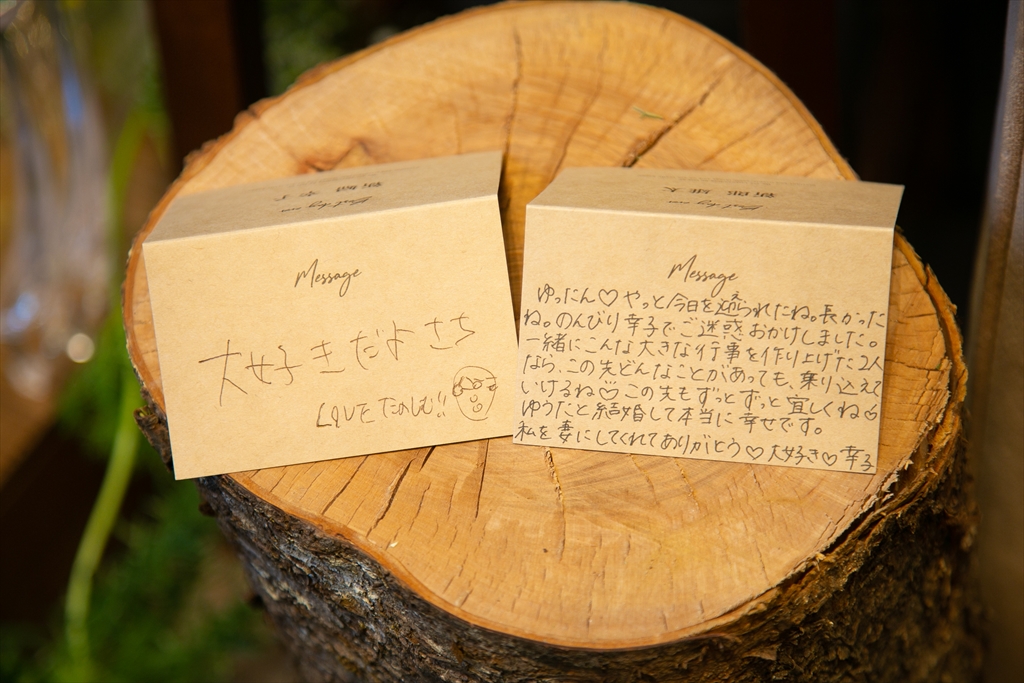 新婦 幸子
Message
大好きだよ さち
LOVEたのしむ!!
新郎 雄太
Message
ゆったん♡ やっと今日を迎られたね。長かった
ね。のんびり幸子でご迷惑おかけしました。
一緒にこんな大きな行事を作り上げた2人
なら、この先どんなことがあっても、乗り込えて
いけるね♡ この先もずっとずっと宜しくね♡
ゆうたと結婚して本当に幸せです。
私を妻にしてくれてありがとう♡大好き♡幸子